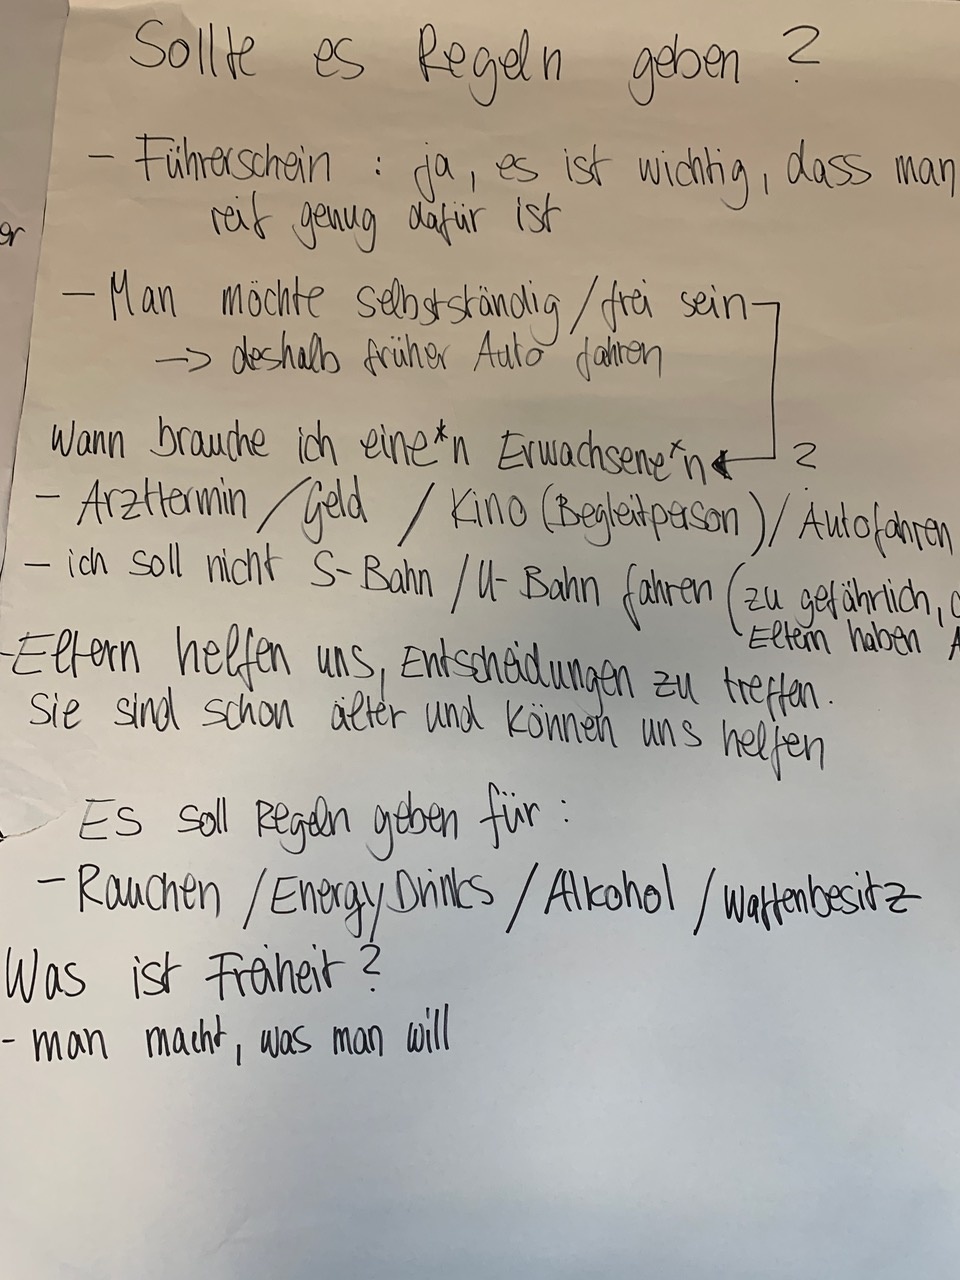 Sollte es Regeln geben ?
- Führerschein : ja, es ist wichtig, dass man
reif genug dafür ist
er
- Man möchte selbstständig / frei sein
-> deshalb früher Auto fahren
Wann brauche ich eine*n Erwachsene*n ?
- Arzttermin / Geld / Kino (Begleitperson) / Autofahren
- ich soll nicht S-Bahn / U-Bahn fahren (zu gefährlich,
Eltern haben
- Eltern helfen uns, Entscheidungen zu treffen.
Sie sind schon älter und können uns helfen
Es soll Regeln geben für :
- Rauchen / Energy Drinks / Alkohol / Waffenbesitz
Was ist Freiheit ?
- man macht, was man will